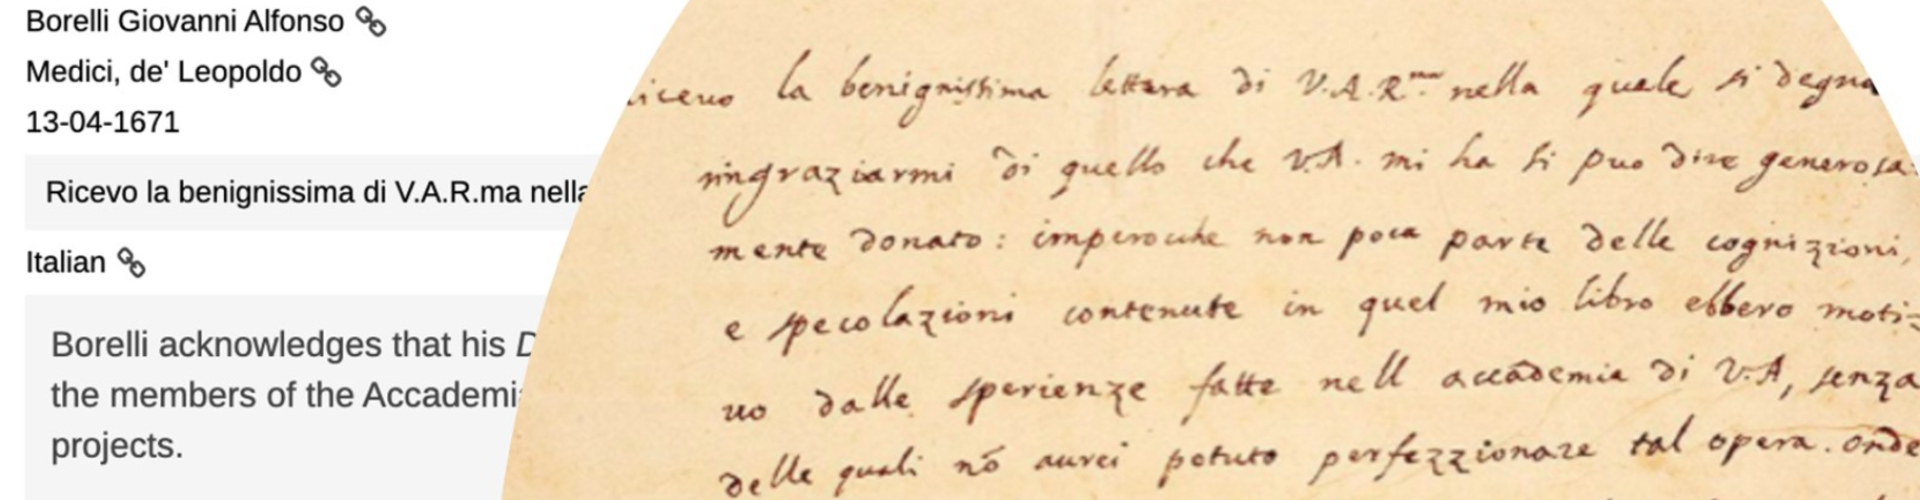 Borelli Giovanni Alfonso
Medici, de' Leopoldo
13-04-1671
Ricevo la benignissima di V.A.R.ma nella
Italian
Borelli acknowledges that his D
the members of the Accademi
projects.
iceuo la benignissima lettera di V.A.R.ma nella quale si degna
ringraziarmi di quello che V.A. mi ha si puo dire generosa:
mente donato: imperoche non poca parte delle cognizioni,
e specolazioni contenute in quel mio libro ebbero moti=
uo dalle sperienze fatte nell accademia di V.A, senza
delle quali nō aurei potuto perfezzionare tal opera. onde